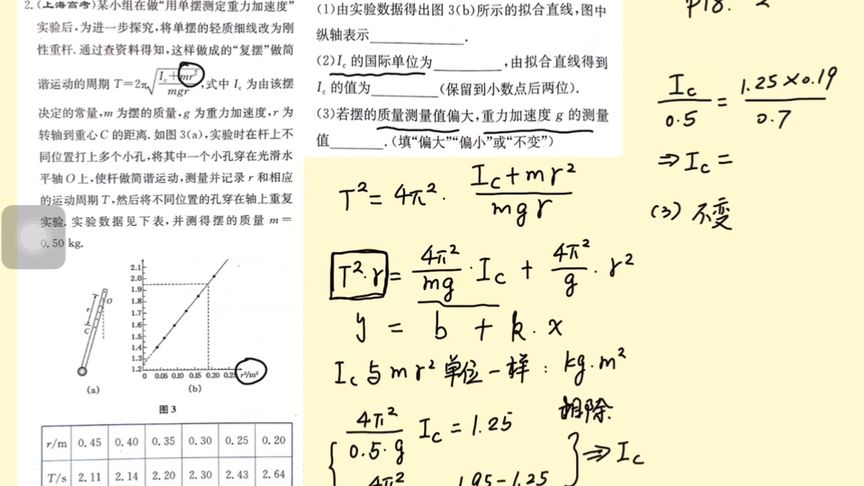 2.(上海高考)某小组在做“用单摆测定重力加速度”
实验后,为进一步探究,将单摆的轻质细线改为刚
性重杆.通过查资料得知,这样做成的“复摆”做简
谐运动的周期 T=2π√(I_c+mr²/mgr),式中 I_c 为由该摆
决定的常量,m 为摆的质量,g 为重力加速度,r 为
转轴到重心 C 的距离.如图3(a),实验时在杆上不
同位置打上多个小孔,将其中一个小孔穿在光滑水
平轴 O 上,使杆做简谐运动,测量并记录 r 和相应
的运动周期 T,然后将不同位置的孔穿在轴上重复
实验.实验数据见下表,并测得摆的质量 m=
0.50 kg.
r
O
C
(a)
2.1
2.0
1.9
1.8
1.7
1.6
1.5
1.4
1.3
1.2
0 0.05 0.10 0.15 0.20 0.25 r²/m²
(b)
图3
r/m 0.45 0.40 0.35 0.30 0.25 0.20
T/s 2.11 2.14 2.20 2.30 2.43 2.64
(1)由实验数据得出图3(b)所示的拟合直线,图中
纵轴表示________.
(2)I_c 的国际单位为________,由拟合直线得到
I_c 的值为________(保留到小数点后两位).
(3)若摆的质量测量值偏大,重力加速度 g 的测量
值________.(填“偏大”“偏小”或“不变”)
T²=4π²·(I_c+mr²)/mgr
T²·r=4π²/mg·I_c+4π²/g·r²
y = b + k·x
I_c与mr²单位一样:kg·m²
4π²/0.5·g I_c=1.25
相除
⇒I_c
4π² 1.95-1.25
P18. 2
I_c/0.5=1.25×0.19/0.7
⇒I_c=
(3) 不变